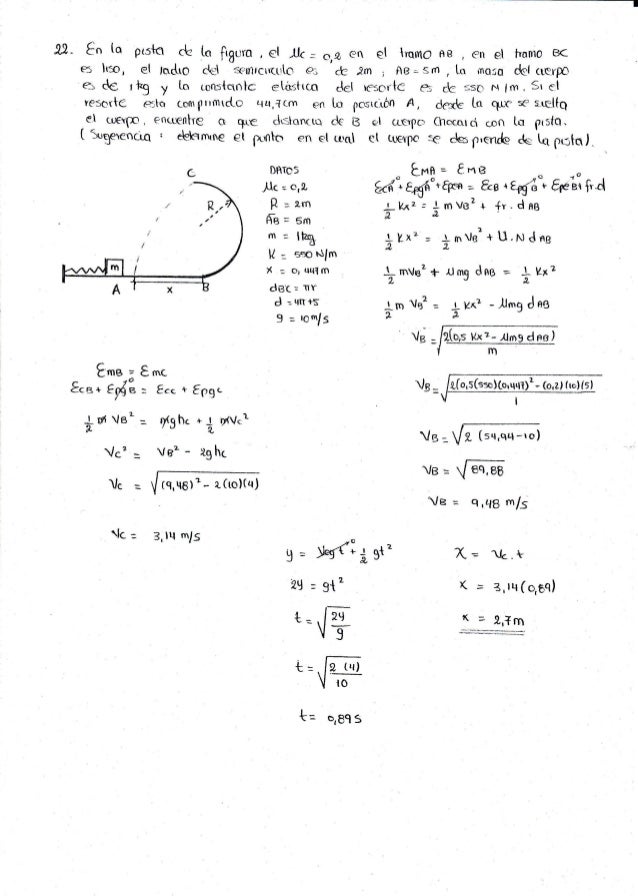 22. En la pista de la figura, el Mc = 0,2 en el tramo AB, en el tramo BC
es liso, el radio del semicirculo es de 2m ; AB = 5m, la masa del cuerpo
es de 1kg y la constante elástica del resorte es de 550 N/m. Si el
resorte esta comprimido 44,7cm en la posición A, desde la que se suelta
el cuerpo, encuentre a que distancia de B el cuerpo chocará con la pista.
( Sugerencia : determine el punto en el cual el cuerpo se desprende de la pista).
C
R
m
A
x
B
DATOS
Mc = 0,2
R = 2m
AB = 5m
m = 1kg
K = 550 N/m
x = 0,447m
dBC = πr
d = 4π+5
g = 10m/s
EMA = EMB
EcA + EpgA°+ EpeA = EcB + EpgB° + EpeB°+ fr.d
1/2 kx² = 1/2 m VB² + fr. d AB
1/2 kx² = 1/2 m VB² + U.N d AB
1/2 mVB² + Umg dAB = 1/2 Kx²
1/2 m VB² = 1/2 KX² - Umg d AB
VB = √2(0,5 Kx² - Umg dAB) / m
VB = √2(0,5(550)(0,447)² - (0,2)(10)(5) / 1
VB = √2 (54,94-10)
VB = √89,88
VB = 9,48 m/s
EmB = Emc
EcB + EpgB° = Ecc + Epgc
1/2 m VB² = mghc + 1/2 mVc²
Vc² = VB² - 2ghc
Vc = √(9,48)² - 2(10)(4)
Vc = 3,14 m/s
y = Voy t° + 1/2 gt²
2y = gt²
t = √2y / g
t = √2 (4) / 10
t = 0,89s
X = Vc . t
x = 3,14(0,89)
x = 2,7m